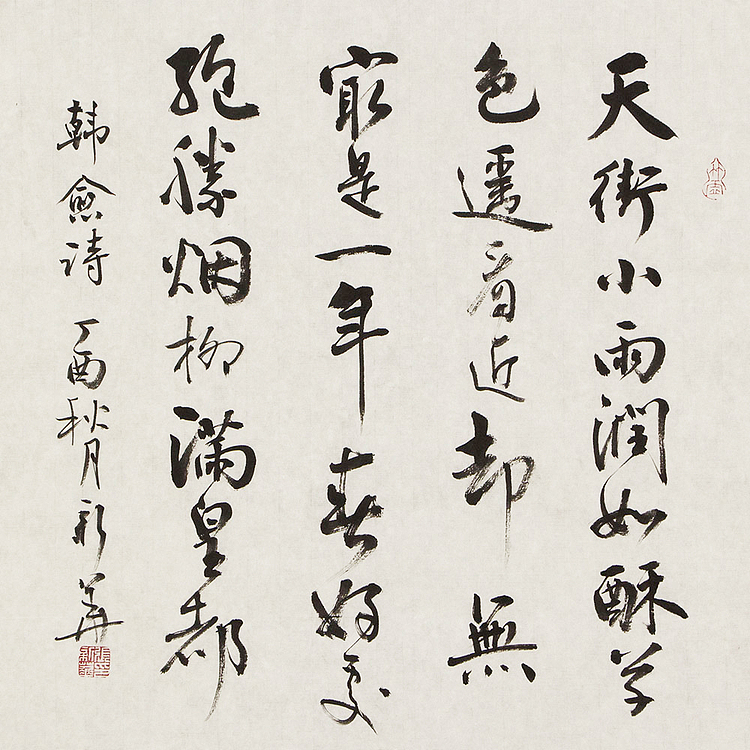 天街小雨润如酥草
色遥看近却無
最是一年春好处
绝勝烟柳满皇都
韩愈诗 丁酉秋月新華